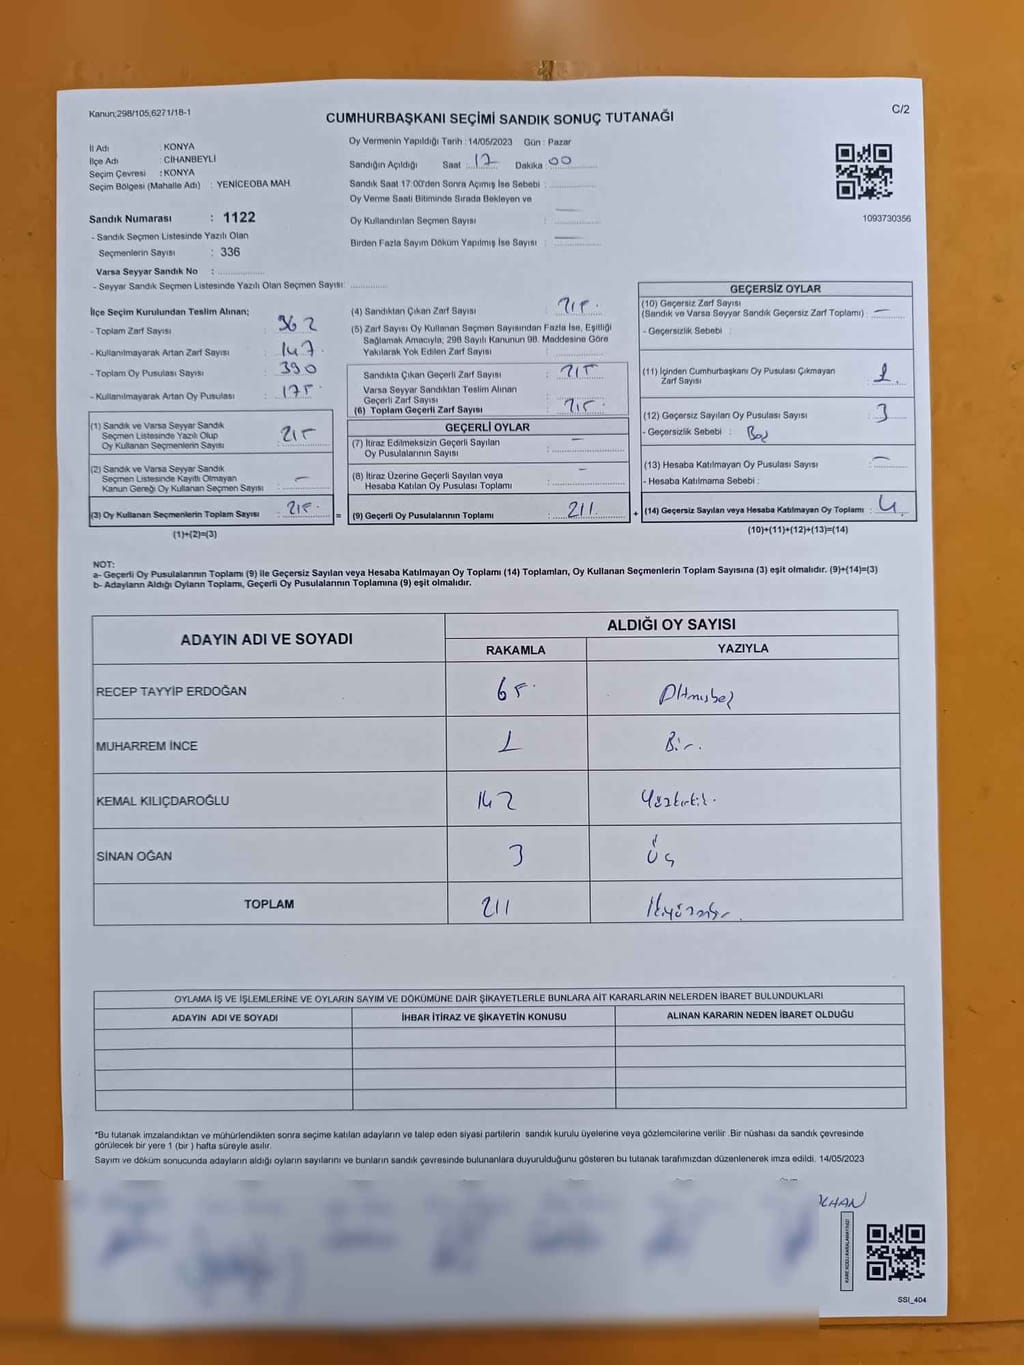 Kanun;298/105,6271/18-1
C/2
CUMHURBAŞKANI SEÇİMİ SANDIK SONUÇ TUTANAĞI
İl Adı : KONYA
İlçe Adı : CİHANBEYLİ
Seçim Çevresi : KONYA
Seçim Bölgesi (Mahalle Adı) : YENİCEOBA MAH.
Sandık Numarası : 1122
- Sandık Seçmen Listesinde Yazılı Olan
Seçmenlerin Sayısı : 336
Varsa Seyyar Sandık No :
- Seyyar Sandık Seçmen Listesinde Yazılı Olan Seçmen Sayısı:
Oy Vermenin Yapıldığı Tarih : 14/05/2023 Gün : Pazar
Sandığın Açıldığı Saat 17 Dakika 00
Sandık Saat 17:00'den Sonra Açılmış İse Sebebi :
Oy Verme Saati Bitiminde Sırada Bekleyen ve
Oy Kullandırılan Seçmen Sayısı :
Birden Fazla Sayım Döküm Yapılmış İse Sayısı :
1093730356
İlçe Seçim Kurulundan Teslim Alınan;
- Toplam Zarf Sayısı : 362
- Kullanılmayarak Artan Zarf Sayısı : 147
- Toplam Oy Pusulası Sayısı : 390
- Kullanılmayarak Artan Oy Pusulası : 175
(1) Sandık ve Varsa Seyyar Sandık
Seçmen Listesinde Yazılı Olup
Oy Kullanan Seçmenlerin Sayısı : 215
(2) Sandık ve Varsa Seyyar Sandık
Seçmen Listesinde Kayıtlı Olmayan
Kanun Gereği Oy Kullanan Seçmen Sayısı : –
(3) Oy Kullanan Seçmenlerin Toplam Sayısı : 215
(1)+(2)=(3)
(4) Sandıktan Çıkan Zarf Sayısı : 215
(5) Zarf Sayısı Oy Kullanan Seçmen Sayısından Fazla İse, Eşitliği
Sağlamak Amacıyla; 298 Sayılı Kanunun 98. Maddesine Göre
Yakılarak Yok Edilen Zarf Sayısı :
Sandıkta Çıkan Geçerli Zarf Sayısı : 215
Varsa Seyyar Sandıktan Teslim Alınan
Geçerli Zarf Sayısı :
(6) Toplam Geçerli Zarf Sayısı : 215
GEÇERLİ OYLAR
(7) İtiraz Edilmeksizin Geçerli Sayılan
Oy Pusulalarının Sayısı : –
(8) İtiraz Üzerine Geçerli Sayılan veya
Hesaba Katılan Oy Pusulası Toplamı : –
= (9) Geçerli Oy Pusulalarının Toplamı : 211
GEÇERSİZ OYLAR
(10) Geçersiz Zarf Sayısı
(Sandık ve Varsa Seyyar Sandık Geçersiz Zarf Toplamı) : –
- Geçersizlik Sebebi :
(11) İçinden Cumhurbaşkanı Oy Pusulası Çıkmayan
Zarf Sayısı : 1
(12) Geçersiz Sayılan Oy Pusulası Sayısı : 3
- Geçersizlik Sebebi : Boş
(13) Hesaba Katılmayan Oy Pusulası Sayısı : –
- Hesaba Katılmama Sebebi :
+ (14) Geçersiz Sayılan veya Hesaba Katılmayan Oy Toplamı : 4
(10)+(11)+(12)+(13)=(14)
NOT:
a- Geçerli Oy Pusulalarının Toplamı (9) ile Geçersiz Sayılan veya Hesaba Katılmayan Oy Toplamı (14) Toplamları, Oy Kullanan Seçmenlerin Toplam Sayısına (3) eşit olmalıdır. (9)+(14)=(3)
b- Adayların Aldığı Oyların Toplamı, Geçerli Oy Pusulalarının Toplamına (9) eşit olmalıdır.
ADAYIN ADI VE SOYADI ALDIĞI OY SAYISI
RAKAMLA YAZIYLA
RECEP TAYYİP ERDOĞAN 65 Altmışbeş
MUHARREM İNCE 1 Bir
KEMAL KILIÇDAROĞLU 142 Yüzkırkiki
SİNAN OĞAN 3 Üç
TOPLAM 211 İkiyüzonbir
OYLAMA İŞ VE İŞLEMLERİNE VE OYLARIN SAYIM VE DÖKÜMÜNE DAİR ŞİKAYETLERLE BUNLARA AİT KARARLARIN NELERDEN İBARET BULUNDUKLARI
ADAYIN ADI VE SOYADI İHBAR İTİRAZ VE ŞİKAYETİN KONUSU ALINAN KARARIN NEDEN İBARET OLDUĞU
*Bu tutanak imzalandıktan ve mühürlendikten sonra seçime katılan adayların ve talep eden siyasi partilerin sandık kurulu üyelerine veya gözlemcilerine verilir .Bir nüshası da sandık çevresinde
görülecek bir yere 1 (bir ) hafta süreyle asılır.
Sayım ve döküm sonucunda adayların aldığı oyların sayılarını ve bunların sandık çevresinde bulunanlara duyurulduğunu gösteren bu tutanak tarafımızdan düzenlenerek imza edildi. 14/05/2023
KHAN
SSI_404